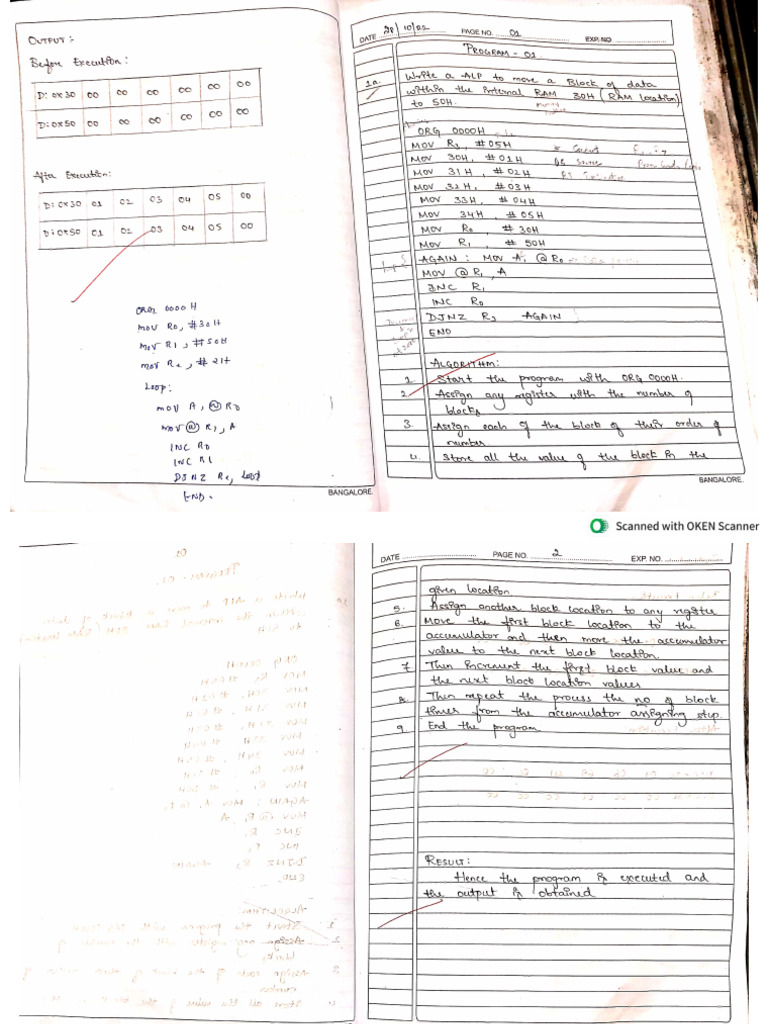 OUTPUT :-
Before Execution :
D: 0x30 00 00 00 00 00 00
D: 0x50 00 00 00 00 00 00
After Execution:
D: 0x30 01 02 03 04 05 00
D: 0x50 01 02 03 04 05 00
ORG 0000H
MOV R0, #30H
MOV R1, #50H
MOV R2, # 21H
Loop:
MOV A, @ R0
MOV @ R1, A
INC R0
INC R1
DJNZ R2, Loop
END.
BANGALORE.
DATE 28/10/02 PAGE NO. 01 EXP. NO
PROGRAM - 01
1a. Write a ALP to move a Block of data
within the internal RAM 30H (RAM location)
to 50H.
ORG 0000H
MOV R3 # 05H
MOV 30H, # 01H
MOV 31H, # 02H
MOV 32H, # 03H
MOV 33H, # 04H
MOV 34H, # 05H
MOV R0, # 30H
MOV R1, # 50H
AGAIN : MOV A, @ R0
MOV @ R1, A
INC R1
INC R0
DJNZ R3 AGAIN
END
ALGORITHM:
1. Start the program with ORG 0000H.
2. Assign any register with the number of
blocks
3. Assign each of the block of their order of
number.
4. Store all the value of the block in the
BANGALORE.
Scanned with OKEN Scanner
DATE PAGE NO. 2 EXP. NO.
given location
5. Assign another block location to any register
6. Move the first block location to the
accumulator and then move the accumulator
value to the next block location.
7. Then increment the first block value and
the next block location values
8. Then repeat the process the no of block
times from the accumulator assigning step.
9. End the program
RESULT:
Hence the program is executed and
the output is obtained